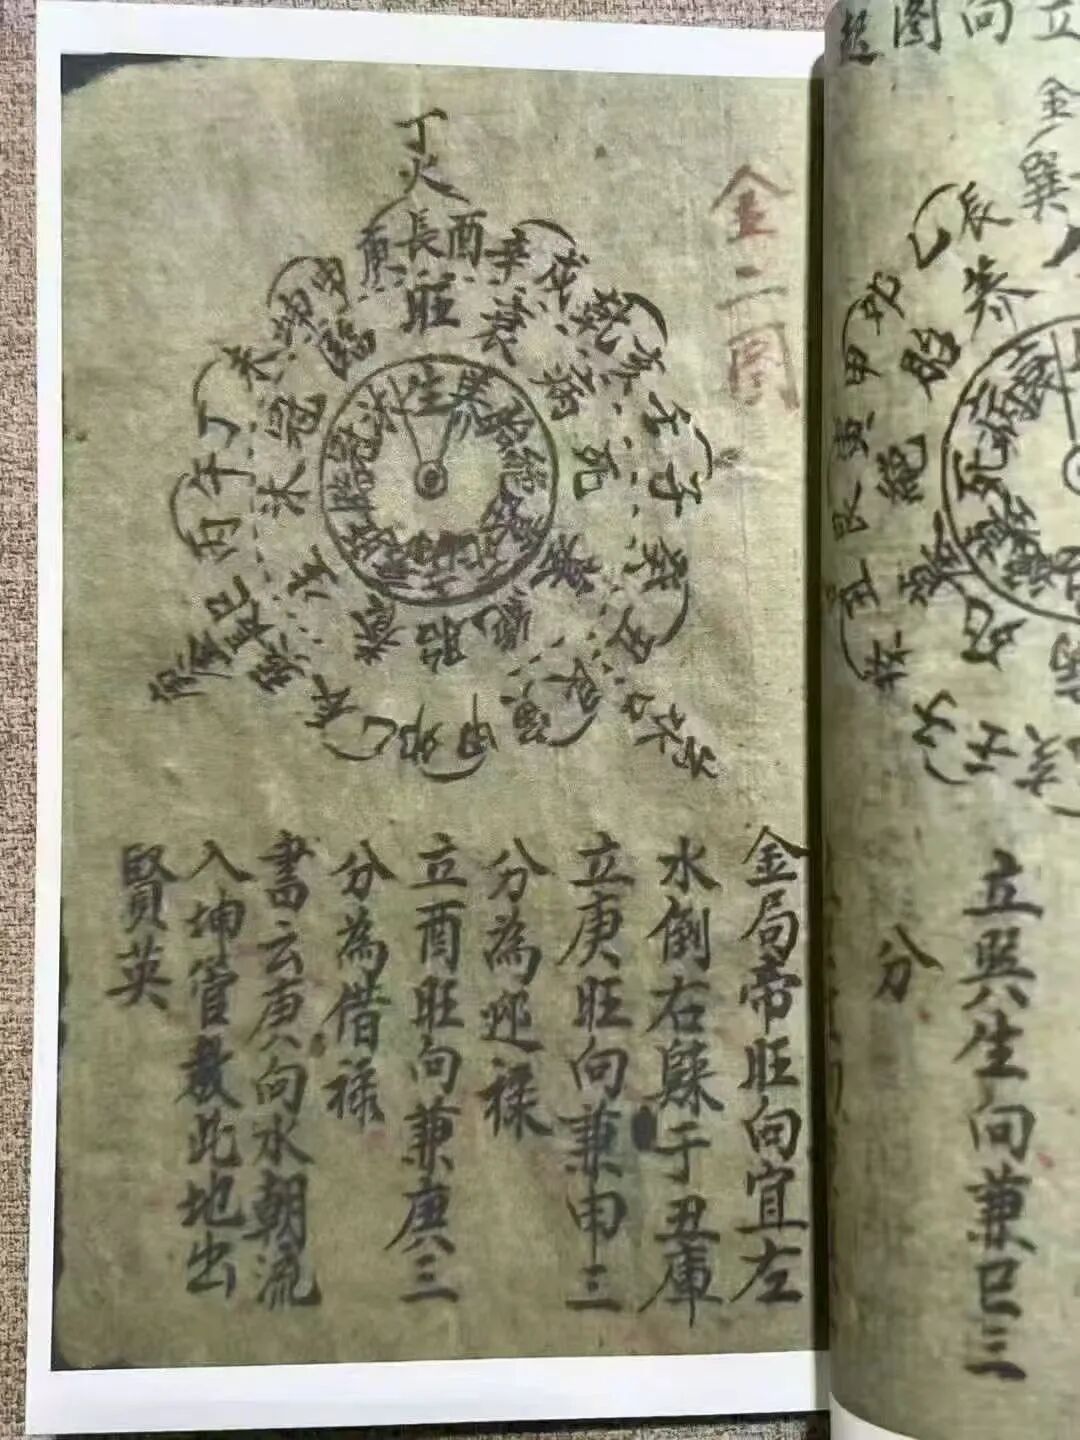 金二图
丁火
長
庚 酉 辛 戌 乾 亥 壬 子 癸 丑 艮 寅 甲 卯 乙 辰 巽 巳 丙 午 丁 未 坤 申
旺 衰 病 死 墓 絕 胎 養 生 沐 冠 臨
生 養 胎 絕
冠 沐
金局帝旺向宜左
水倒右歸于丑庫
立庚旺向兼申三
分為迎祿
立酉旺向兼庚三
分為借祿
書云庚向水朝流
入坤管教此地出
賢英
立向图
金
巽
辰
乙
卯
甲
寅
艮
丑
癸
子
壬
亥
養
胎
絕
死
立巽生向兼巳三
分